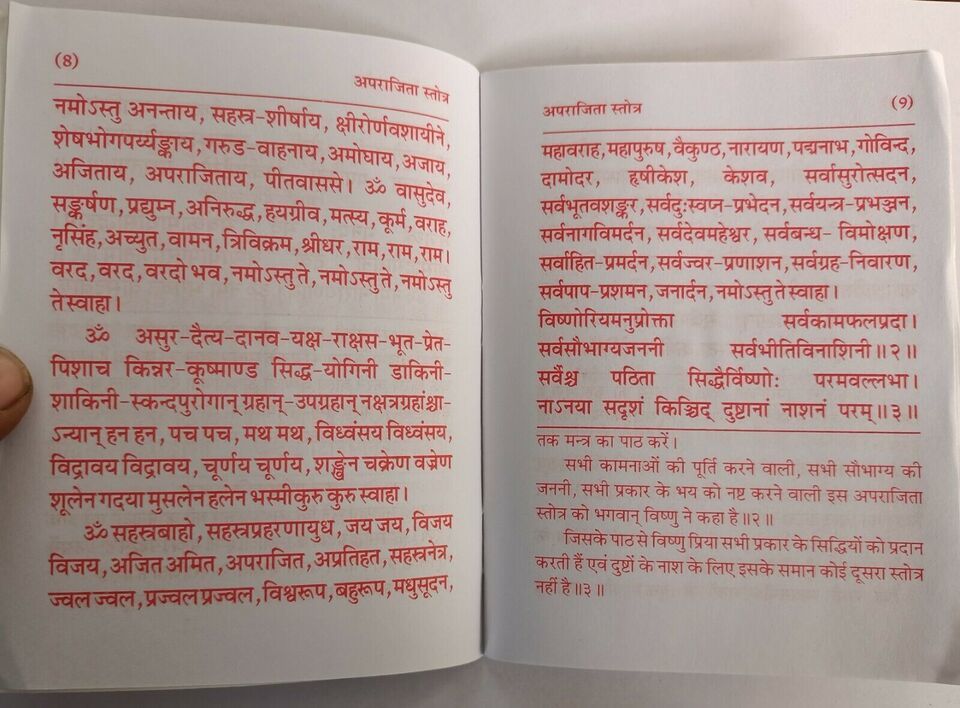 (8)
अपराजिता स्तोत्र
नमोऽस्तु अनन्ताय, सहस्त्र-शीर्षाय, क्षीरोर्णवशायीने,
शेषभोगपर्य्यङ्काय, गरुड-वाहनाय, अमोघाय, अजाय,
अजिताय, अपराजिताय, पीतवाससे। ॐ वासुदेव,
सङ्कर्षण, प्रद्युम्न, अनिरुद्ध, हयग्रीव, मत्स्य, कूर्म, वराह,
नृसिंह, अच्युत, वामन, त्रिविक्रम, श्रीधर, राम, राम, राम।
वरद, वरद, वरदो भव, नमोऽस्तु ते, नमोऽस्तु ते, नमोऽस्तु
ते स्वाहा।
ॐ असुर-दैत्य-दानव-यक्ष-राक्षस-भूत-प्रेत-
पिशाच किन्नर-कूष्माण्ड सिद्ध-योगिनी डाकिनी-
शाकिनी-स्कन्दपुरोगान् ग्रहान्-उपग्रहान् नक्षत्रग्रहांश्चा-
ऽन्यान् हन हन, पच पच, मथ मथ, विध्वंसय विध्वंसय,
विद्रावय विद्रावय, चूर्णय चूर्णय, शङ्खेन चक्रेण वज्रेण
शूलेन गदया मुसलेन हलेन भस्मीकुरु कुरु स्वाहा।
ॐ सहस्त्रबाहो, सहस्त्रप्रहरणायुध, जय जय, विजय
विजय, अजित अमित, अपराजित, अप्रतिहत, सहस्त्रनेत्र,
ज्वल ज्वल, प्रज्वल प्रज्वल, विश्वरूप, बहुरूप, मधुसूदन,
अपराजिता स्तोत्र
(9)
महावराह, महापुरुष, वैकुण्ठ, नारायण, पद्मनाभ, गोविन्द,
दामोदर, हृषीकेश, केशव, सर्वासुरोत्सदन,
सर्वभूतवशङ्कर, सर्वदुःस्वप्न-प्रभेदन, सर्वयन्त्र-प्रभञ्जन,
सर्वनागविमर्दन, सर्वदेवमहेश्वर, सर्वबन्ध- विमोक्षण,
सर्वाहित-प्रमर्दन, सर्वज्वर-प्रणाशन, सर्वग्रह-निवारण,
सर्वपाप-प्रशमन, जनार्दन, नमोऽस्तु ते स्वाहा।
विष्णोरियमनुप्रोक्ता सर्वकामफलप्रदा।
सर्वसौभाग्यजननी सर्वभीतिविनाशिनी॥२॥
सर्वैश्च पठिता सिद्धैर्विष्णोः परमवल्लभा।
नाऽनया सदृशं किञ्चिद् दुष्टानां नाशनं परम्॥३॥
तक मन्त्र का पाठ करें।
सभी कामनाओं की पूर्ति करने वाली, सभी सौभाग्य की
जननी, सभी प्रकार के भय को नष्ट करने वाली इस अपराजिता
स्तोत्र को भगवान् विष्णु ने कहा है॥२॥
जिसके पाठ से विष्णु प्रिया सभी प्रकार के सिद्धियों को प्रदान
करती हैं एवं दुष्टों के नाश के लिए इसके समान कोई दूसरा स्तोत्र
नहीं है॥३॥